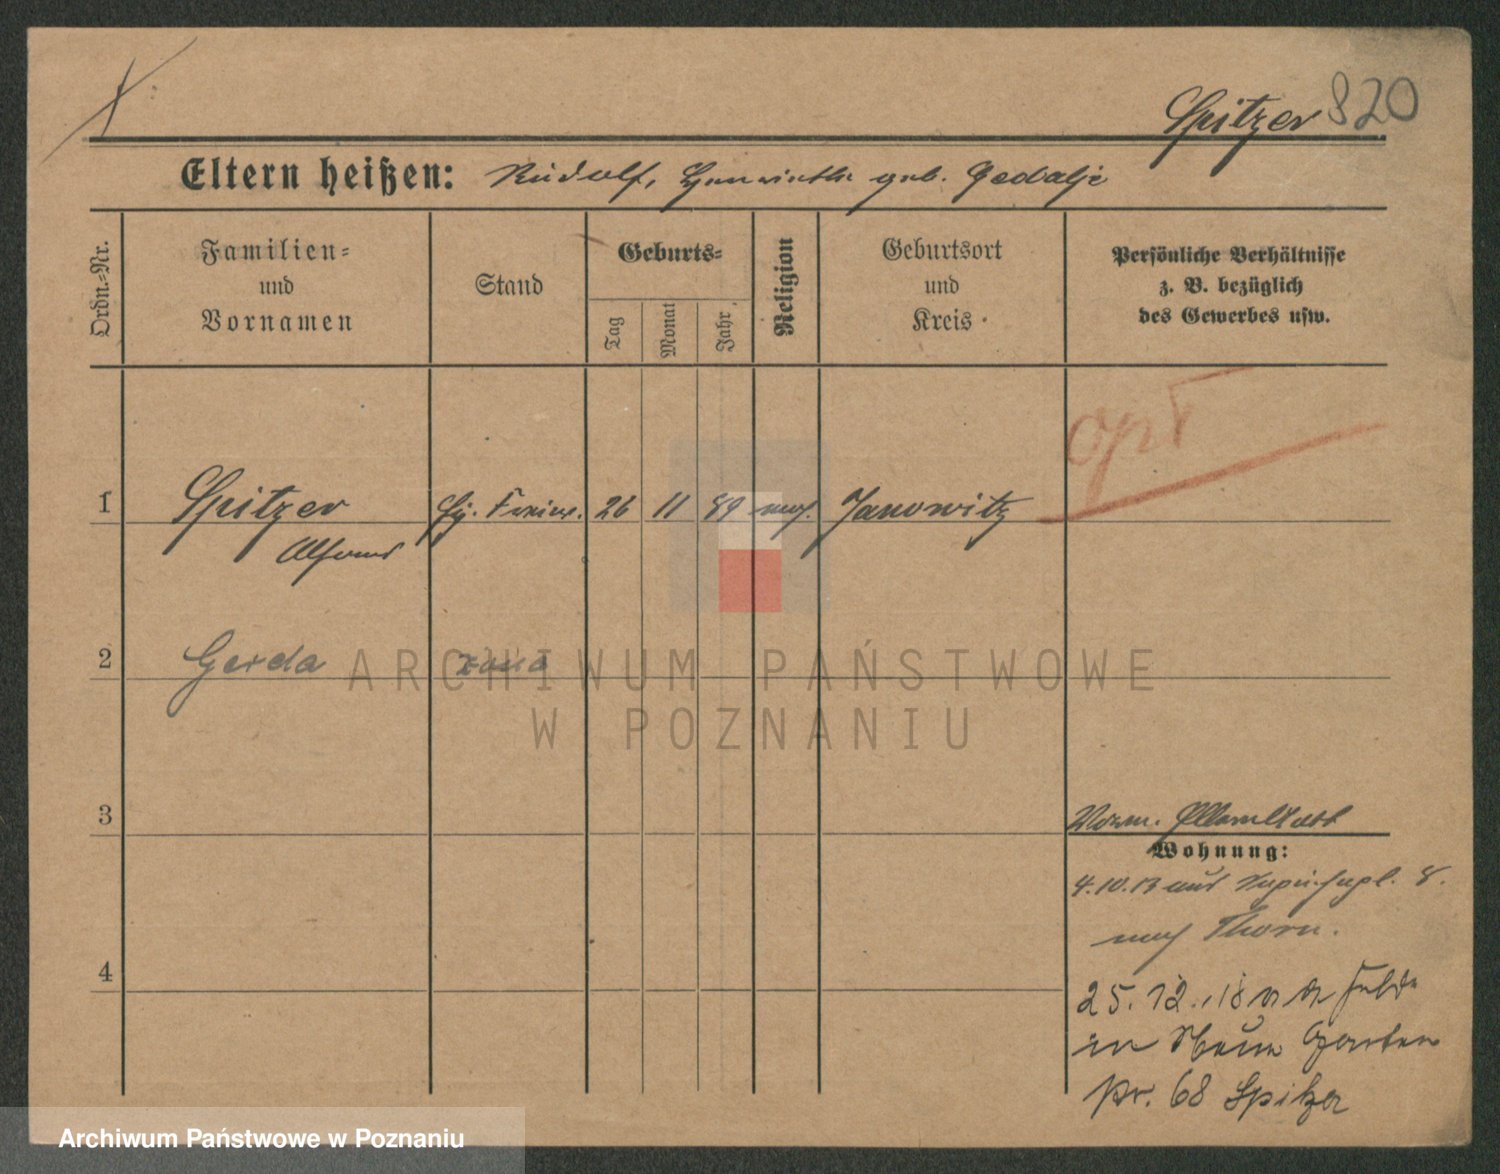 Spitzer 820
Eltern heißen: Rudolf, Henriette geb. Gedalje
Ordn.-Nr.
Familien-
und
Vornamen
Stand
Geburts-
Tag
Monat
Jahr
Religion
Geburtsort
und
Kreis
Persönliche Verhältnisse
z. B. bezüglich
des Gewerbes usw.
opt
1 Spitzer 26 11 89 mos. Janowitz
Alfons
2 Gerda
ARCHIWUM PAŃSTWOWE
W POZNANIU
3
Wohnung:
4.10.13 aus 8.
nach Thorn.
4
25.12.18 a d Felde
in Neue Garten
Nr. 68 Spitzer
Archiwum Państwowe w Poznaniu